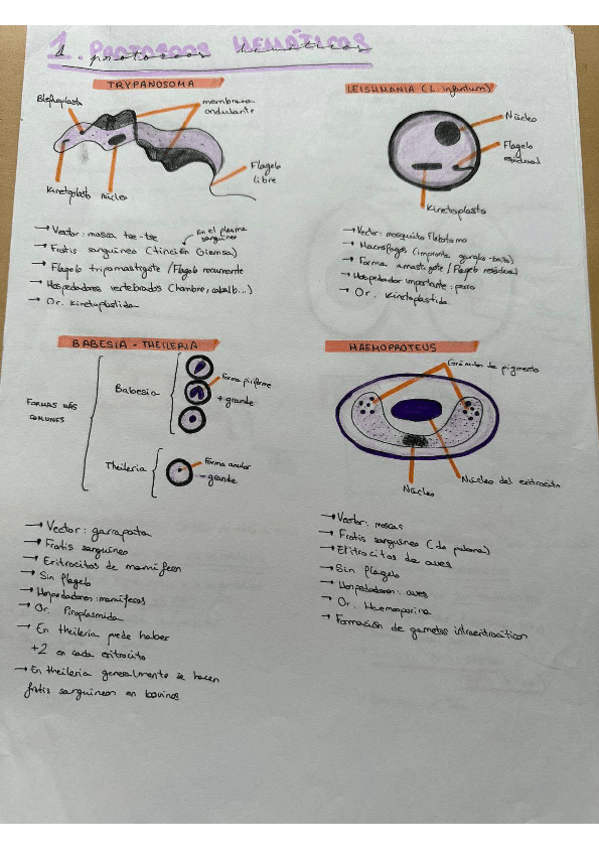 1. PROTOZOOS HEMÁTICOS
protozoos hemáticos
TRYPANOSOMA
Blefaroplasto
membrana
ondulante
Flagelo
libre
Kinetoplasto
Núcleo
→ Vector: mosca tse-tse
En el plasma
sanguíneo
→ Frotis sanguíneo (tinción Giemsa)
→ Flagelo tripomastigote / Flagelo recurrente
→ Hospedadores vertebrados (hombre, caball...)
→ Or. Kinetoplastida
LEISHMANIA (L. infantum)
Núcleo
Flagelo
residual
Kinetoplasto
→ Vector: mosquito Flebotomo
→ Macrófagos (impronta ganglio-bazo)
→ Forma amastigote / Flagelo residual
→ Hospedador importante: perro
→ Or. Kinetoplastida
BABESIA - THEILERIA
FORMAS MÁS
COMUNES
Babesia
Forma piriforme
+ grande
Theileria
Forma anular
- grande
→ Vector: garrapata
→ Frotis sanguíneo
→ Eritrocitos de mamíferos
→ Sin flagelo
→ Hospedadores: mamíferos
→ Or. Piroplasmida
→ En theileria puede haber
+2 en cada eritrocito
→ En theileria generalmente se hacen
frotis sanguíneos en bovinos
HAEMOPROTEUS
Gránulos de pigmento
Núcleo
Núcleo del eritrocito
→ Vector: moscas
→ Frotis sanguíneo (de paloma)
→ Eritrocitos de aves
→ Sin flagelo
→ Hospedadores: aves
→ Or. Haemosporina
→ Formación de gametos intraeritrocíticos